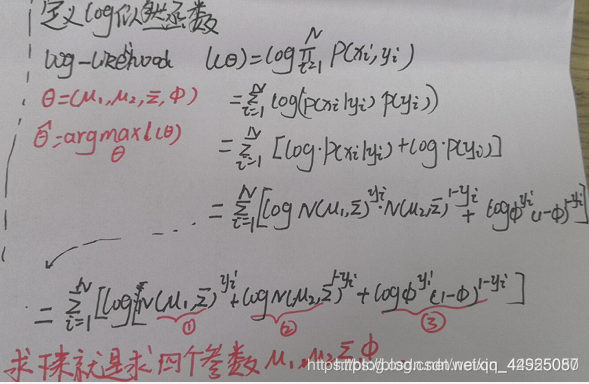 定义log似然函数
log-likelihood l(θ)=log∏_{i=1}^{N} P(xi,yi)
θ=(μ1,μ2,Σ,Φ) =∑_{i=1}^{N} log(p(xi|yi) p(yi))
θ̂=argmax_θ l(θ) =∑_{i=1}^{N} [log·p(xi|yi)+log·p(yi)]
=∑_{i=1}^{N} [log N(μ1,Σ)^{yi}·N(μ2,Σ)^{1-yi} + logΦ^{yi}(1-Φ)^{1-yi}]
=∑_{i=1}^{N} [log N(μ1,Σ)^{yi}+log N(μ2,Σ)^{1-yi}+logΦ^{yi}(1-Φ)^{1-yi}]
① ② ③
求下来就是求四个参数 μ1,μ2,Σ,Φ